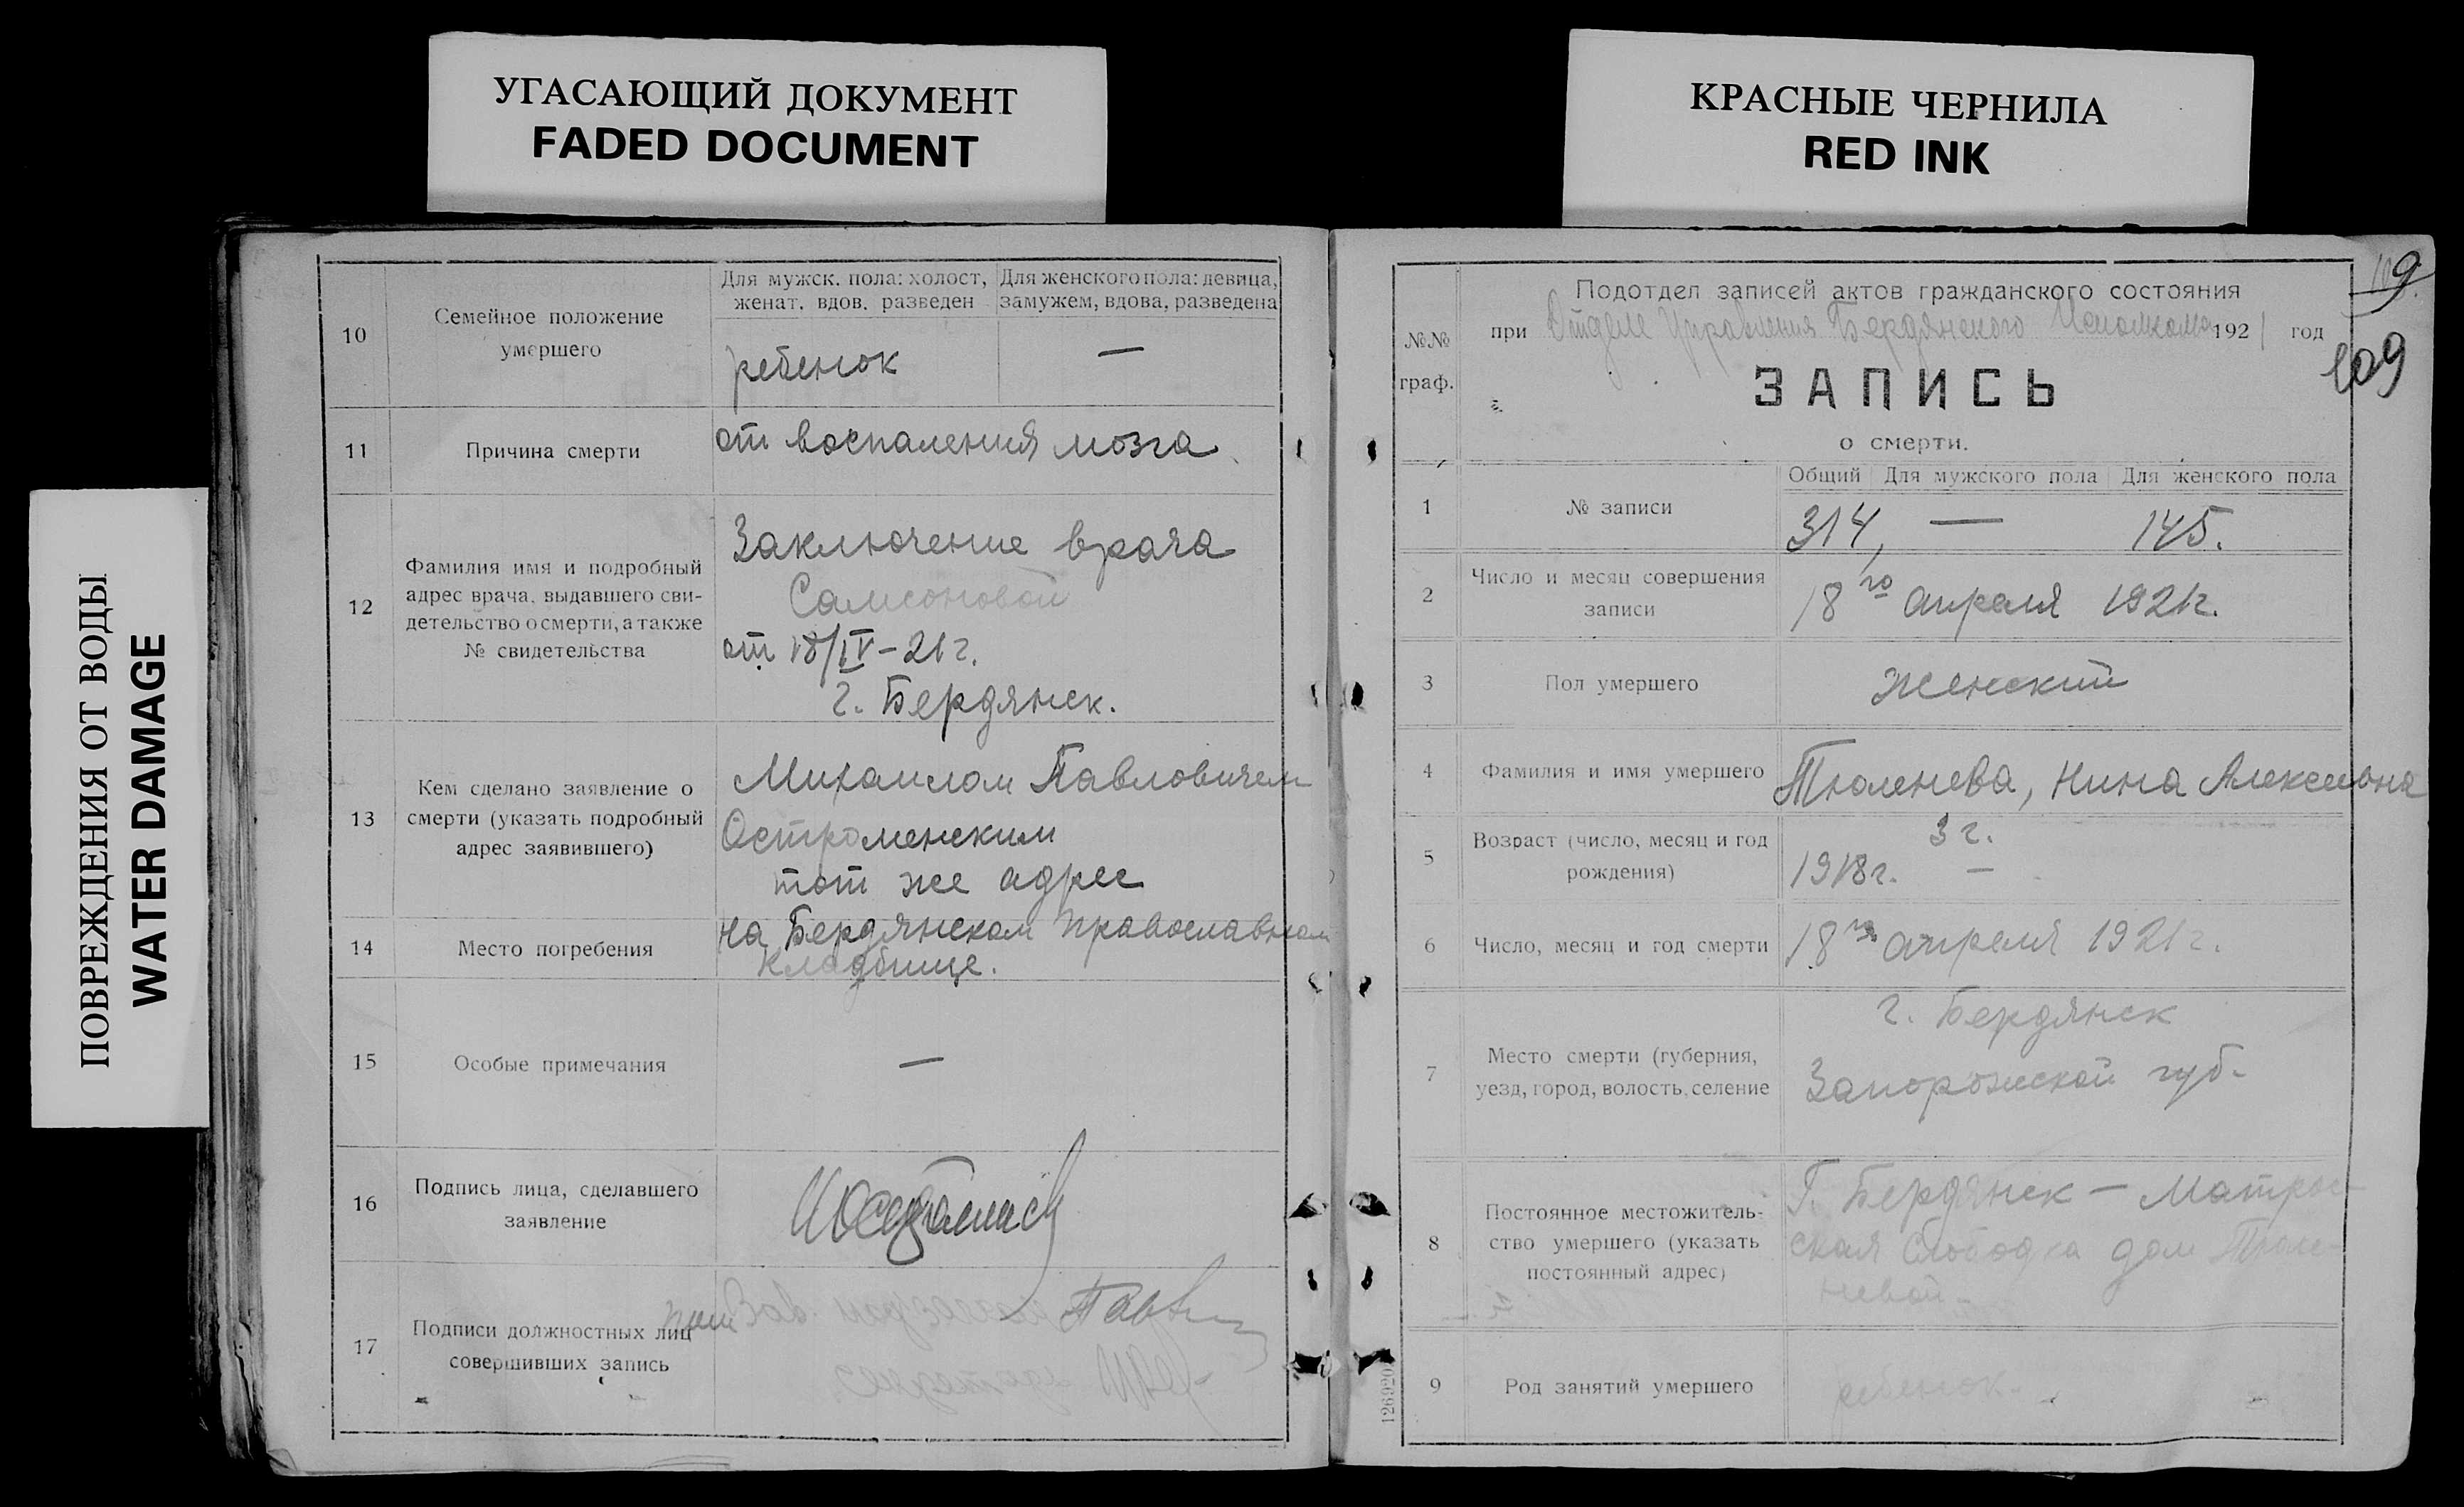 УГАСАЮЩИЙ ДОКУМЕНТ
FADED DOCUMENT
КРАСНЫЕ ЧЕРНИЛА
RED INK
ПОВРЕЖДЕНИЯ ОТ ВОДЫ
WATER DAMAGE
10
Семейное положение
умершего
Для мужск. пола: холост,
женат, вдов, разведен
Для женского пола: девица,
замужем, вдова, разведена
ребенок
—
11
Причина смерти
от воспаления мозга
12
Фамилия имя и подробный
адрес врача, выдавшего сви-
детельство о смерти, а также
№ свидетельства
Заключение врача
Самсоновой
от 18/IV – 21 г.
г. Бердянск.
13
Кем сделано заявление о
смерти (указать подробный
адрес заявившего)
Михаилом Павловичем
тот же адрес
14
Место погребения
на Бердянском православном
кладбище.
15
Особые примечания
—
16
Подпись лица, сделавшего
заявление
17
Подписи должностных лиц
совершивших запись
Зав. подзагсом
109
109
№№
граф.
Подотдел записей актов гражданского состояния
при Отделе Управления Бердянского Исполкома 1921 год
ЗАПИСЬ
о смерти.
1
№ записи
Общий
Для мужского пола
Для женского пола
314, — 145.
2
Число и месяц совершения
записи
18го апреля 1921 г.
3
Пол умершего
женский
4
Фамилия и имя умершего
Тюленева, Нина Алексеевна
5
Возраст (число, месяц и год
рождения)
3 г.
1918 г. —
6
Число, месяц и год смерти
18го апреля 1921 г.
7
Место смерти (губерния,
уезд, город, волость, селение
г. Бердянск
Запорожской губ.
8
Постоянное местожитель-
ство умершего (указать
постоянный адрес)
г. Бердянск – Матрос-
ская Слободка дом Тюле-
невой
9
Род занятий умершего
ребенок.
126920